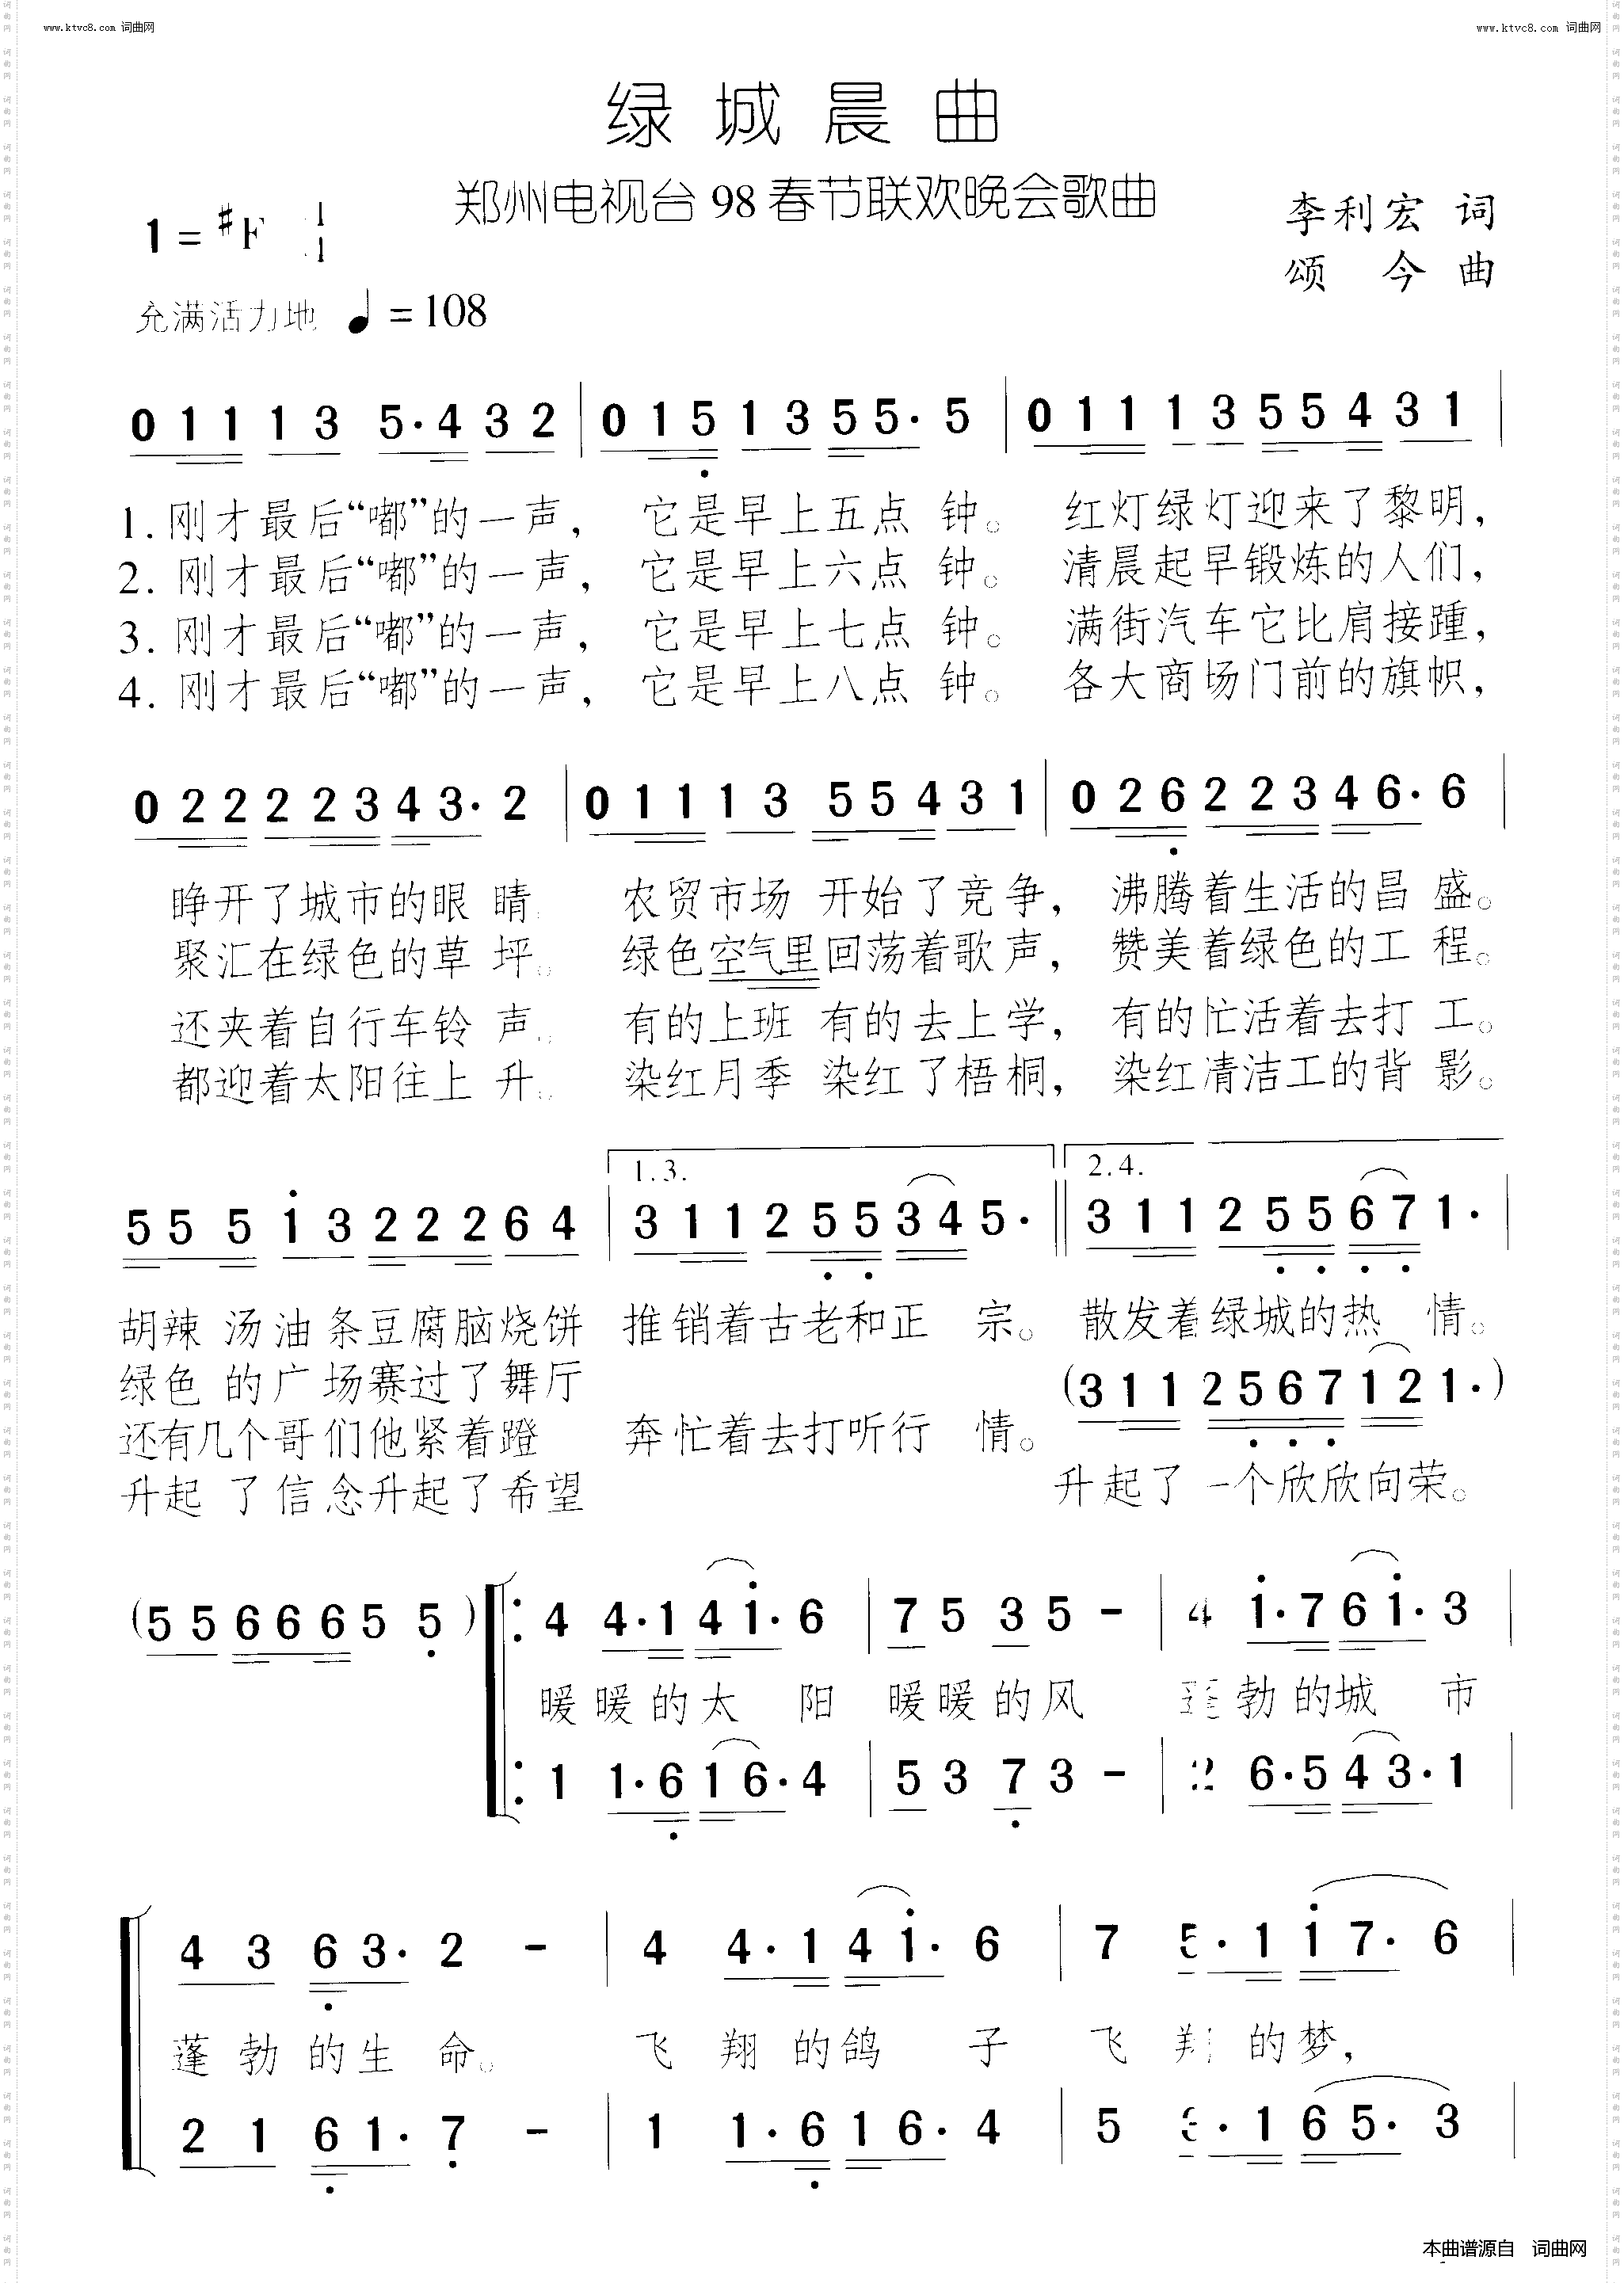 www.ktvc8.com 词曲网
www.ktvc8.com 词曲网
绿城晨曲
郑州电视台98春节联欢晚会歌曲
李利宏 词
颂 今 曲
1=♯F
充满活力地 ♩=108
0 1 1 1 3 5·4 3 2 | 0 1 5 1 3 5 5· 5 | 0 1 1 1 3 5 5 4 3 1 |
1.刚才最后“嘟”的一声， 它是早上五点 钟。 红灯绿灯迎来了黎明，
2.刚才最后“嘟”的一声， 它是早上六点 钟。 清晨起早锻炼的人们，
3.刚才最后“嘟”的一声， 它是早上七点 钟。 满街汽车它比肩接踵，
4.刚才最后“嘟”的一声， 它是早上八点 钟。 各大商场门前的旗帜，
0 2 2 2 2 3 4 3· 2 | 0 1 1 1 3 5 5 4 3 1 | 0 2 6 2 2 3 4 6· 6 |
睁开了城市的眼 睛 农贸市场 开始了竞争， 沸腾着生活的昌 盛。
聚汇在绿色的草 坪。 绿色空气里回荡着歌声， 赞美着绿色的工 程。
还夹着自行车铃 声。 有的上班 有的去上学， 有的忙活着去打 工。
都迎着太阳往上 升。 染红月季 染红了梧桐， 染红清洁工的背 影。
1.3. 2.4.
5 5 5 i 3 2 2 2 6 4 | 3 1 1 2 5 5 3 4 5· || 3 1 1 2 5 5 6 7 1· |
胡辣 汤油条豆腐脑烧饼 推销着古老和正 宗。 散发着绿城的热 情。
绿色 的广场赛过了舞厅 (3 1 1 2 5 6 7 1 2 1·)
还有几个哥们他紧着蹬 奔忙着去打听行 情。
升起 了信念升起了希望 升起了一个欣欣向荣。
(5 5 6 6 6 5 5) ‖: 4 4·1 4 i· 6 | 7 5 3 5 - | 4 i·7 6 i· 3 |
暖暖的太 阳 暖暖的风 勃的城 市
1 1·6 1 6· 4 | 5 3 7 3 - | 2 6·5 4 3· 1 |
4 3 6 3· 2 - | 4 4·1 4 i· 6 | 7 5·1 i 7· 6 |
蓬勃的生 命。 飞 翔的鸽 子 飞 翔的梦，
2 1 6 1· 7 - | 1 1·6 1 6· 4 | 5 3·1 6 5· 3 |
本曲谱源自 词曲网